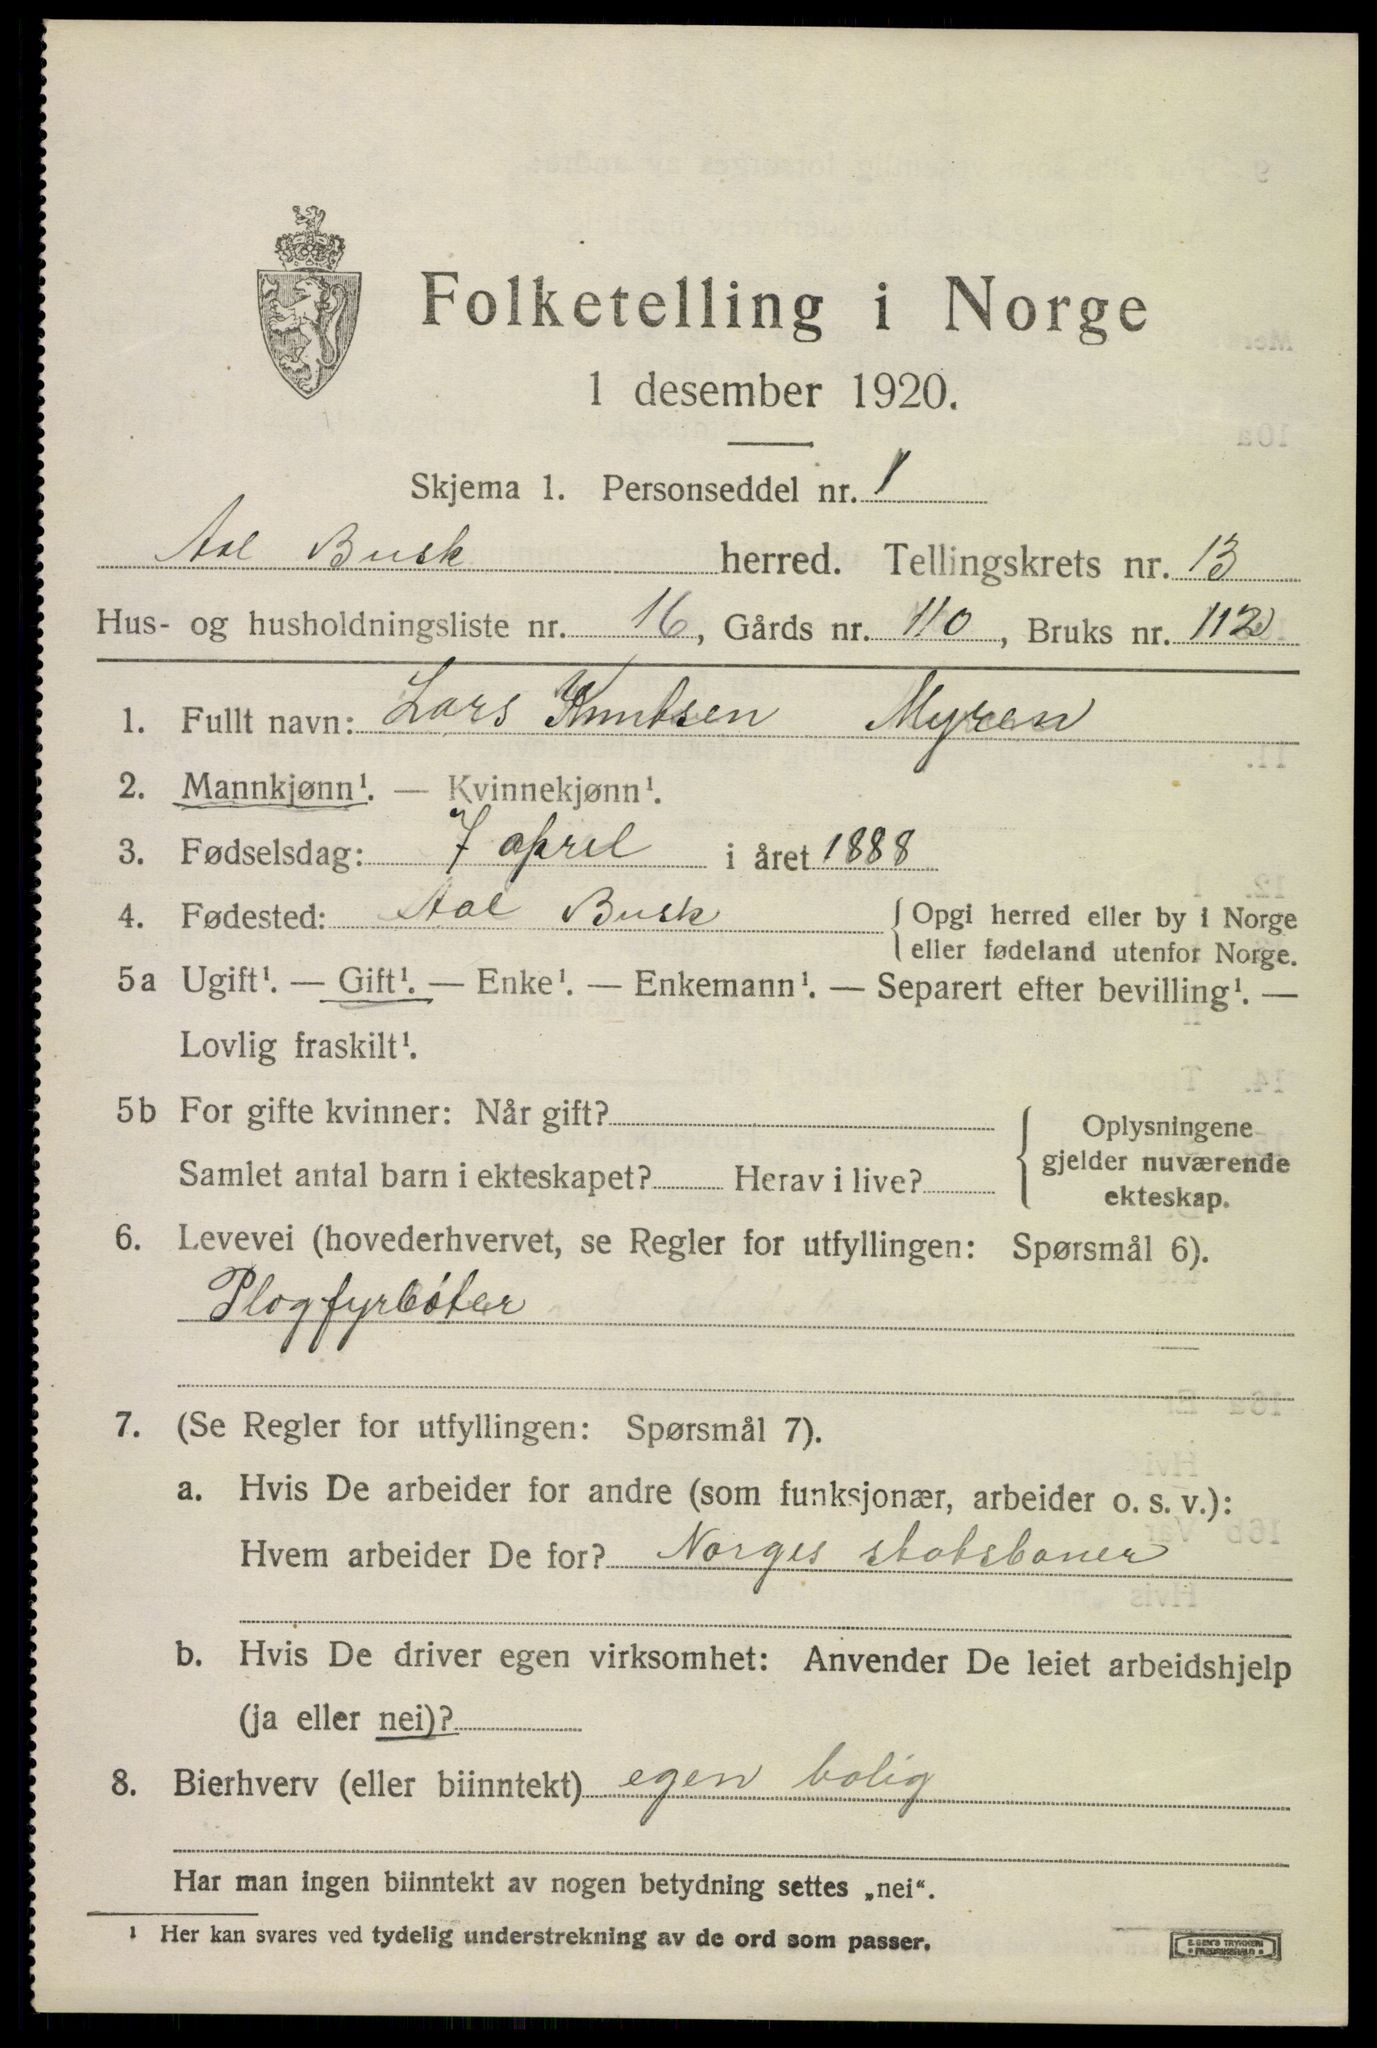 Folketelling i Norge
1 desember 1920.
Skjema 1. Personseddel nr. 1
Aal Busk herred. Tellingskrets nr. 13
Hus- og husholdningsliste nr. 16, Gårds nr. 110, Bruks nr. 112
1. Fullt navn: Lars Knutsen Myren
2. Mannkjønn¹. — Kvinnekjønn¹.
3. Fødselsdag: 7 april i året 1888
4. Fødested: Aal Busk { Opgi herred eller by i Norge
eller fødeland utenfor Norge.
5a Ugift¹. — Gift¹. — Enke¹. — Enkemann¹. — Separert efter bevilling¹. —
Lovlig fraskilt¹.
5b For gifte kvinner: Når gift?
Samlet antal barn i ekteskapet? Herav i live?
Oplysningene
gjelder nuværende
ekteskap.
6. Levevei (hovederhvervet, se Regler for utfyllingen: Spørsmål 6).
Plogfyrbøter
7. (Se Regler for utfyllingen: Spørsmål 7).
a. Hvis De arbeider for andre (som funksjonær, arbeider o. s. v.):
Hvem arbeider De for? Norges statsbaner
b. Hvis De driver egen virksomhet: Anvender De leiet arbeidshjelp
(ja eller nei)?
8. Bierhverv (eller biinntekt) egen bolig
Har man ingen biinntekt av nogen betydning settes „nei“.
¹ Her kan svares ved tydelig understrekning av de ord som passer.